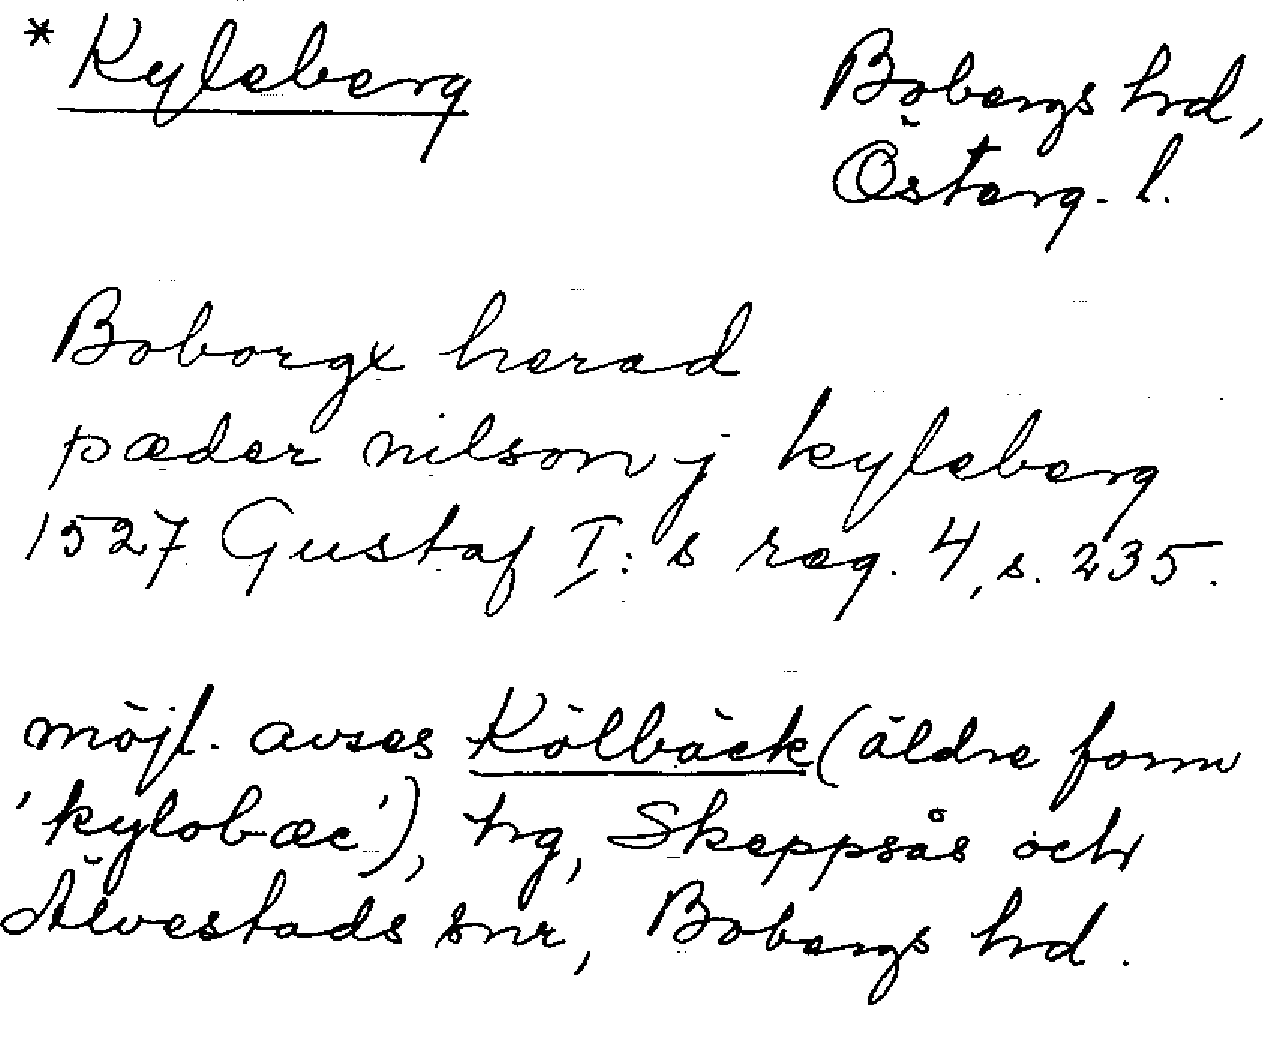 * Kyleberg
Bobergs hrd,
Österg. l.
Boborgx herad
pæder nilson j kyleberg
1527 Gustaf I:s reg. 4, s. 235.
möjl. avses Kölbäck (äldre form
'kylobæc'), hg, Skeppsås och
Älvestads snr, Bobergs hrd.